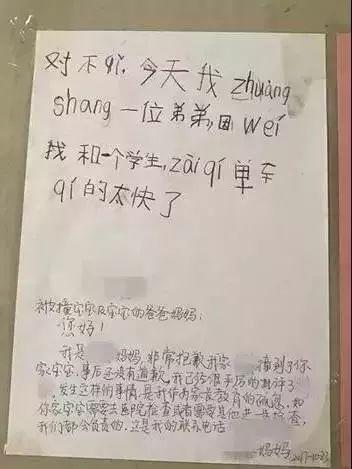 对不qǐ,今天我zhuàng
shang一位弟弟,因wéi
我和一个学生,zài qí单车
qí的太快了
被撞宝宝及宝宝的爸爸妈妈:
您好!
我是 妈妈,非常抱歉我家 撞到了你
家宝宝,事后还没有道歉,我已经很严厉的批评了
,发生这样的事情,是我作为家长教育的疏忽,如
你家宝宝需要去医院检查或者需要其他进一步检查,
我们都会负责的,这是我的联系电话
妈妈 2017-10.23